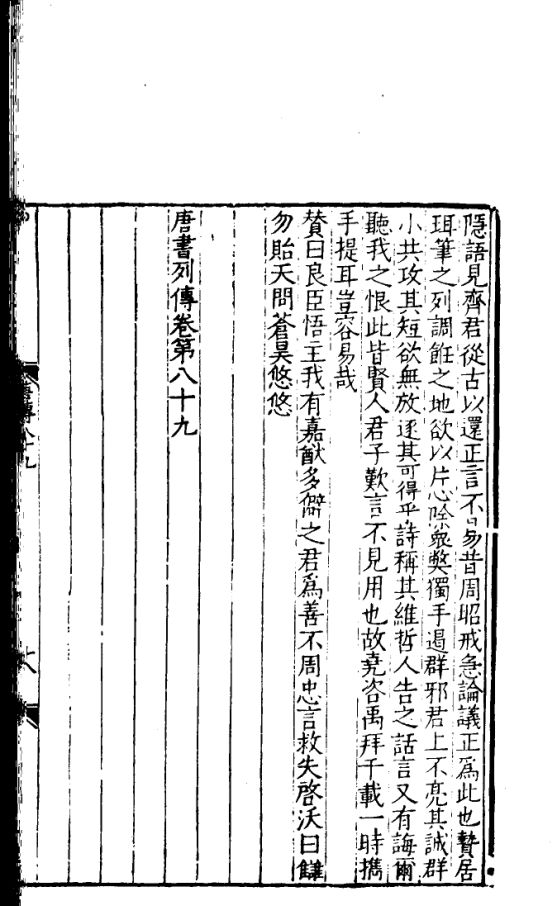 隱語見齊君從古以還正言不易昔周昭戒急論議正爲此也贄居
珥筆之列調飪之地欲以片心除衆弊獨手遏群邪君上不亮其誠群
小共攻其短欲無放逐其可得乎詩稱其維哲人告之話言又有誨爾
聽我之恨此皆賢人君子歎言不見用也故堯咨禹拜千載一時攜
手提耳豈容易哉
贊曰良臣悟主我有嘉猷多僻之君爲善不周忠言救失啓沃曰讎
勿貽天問蒼昊悠悠
唐書列傳卷第八十九